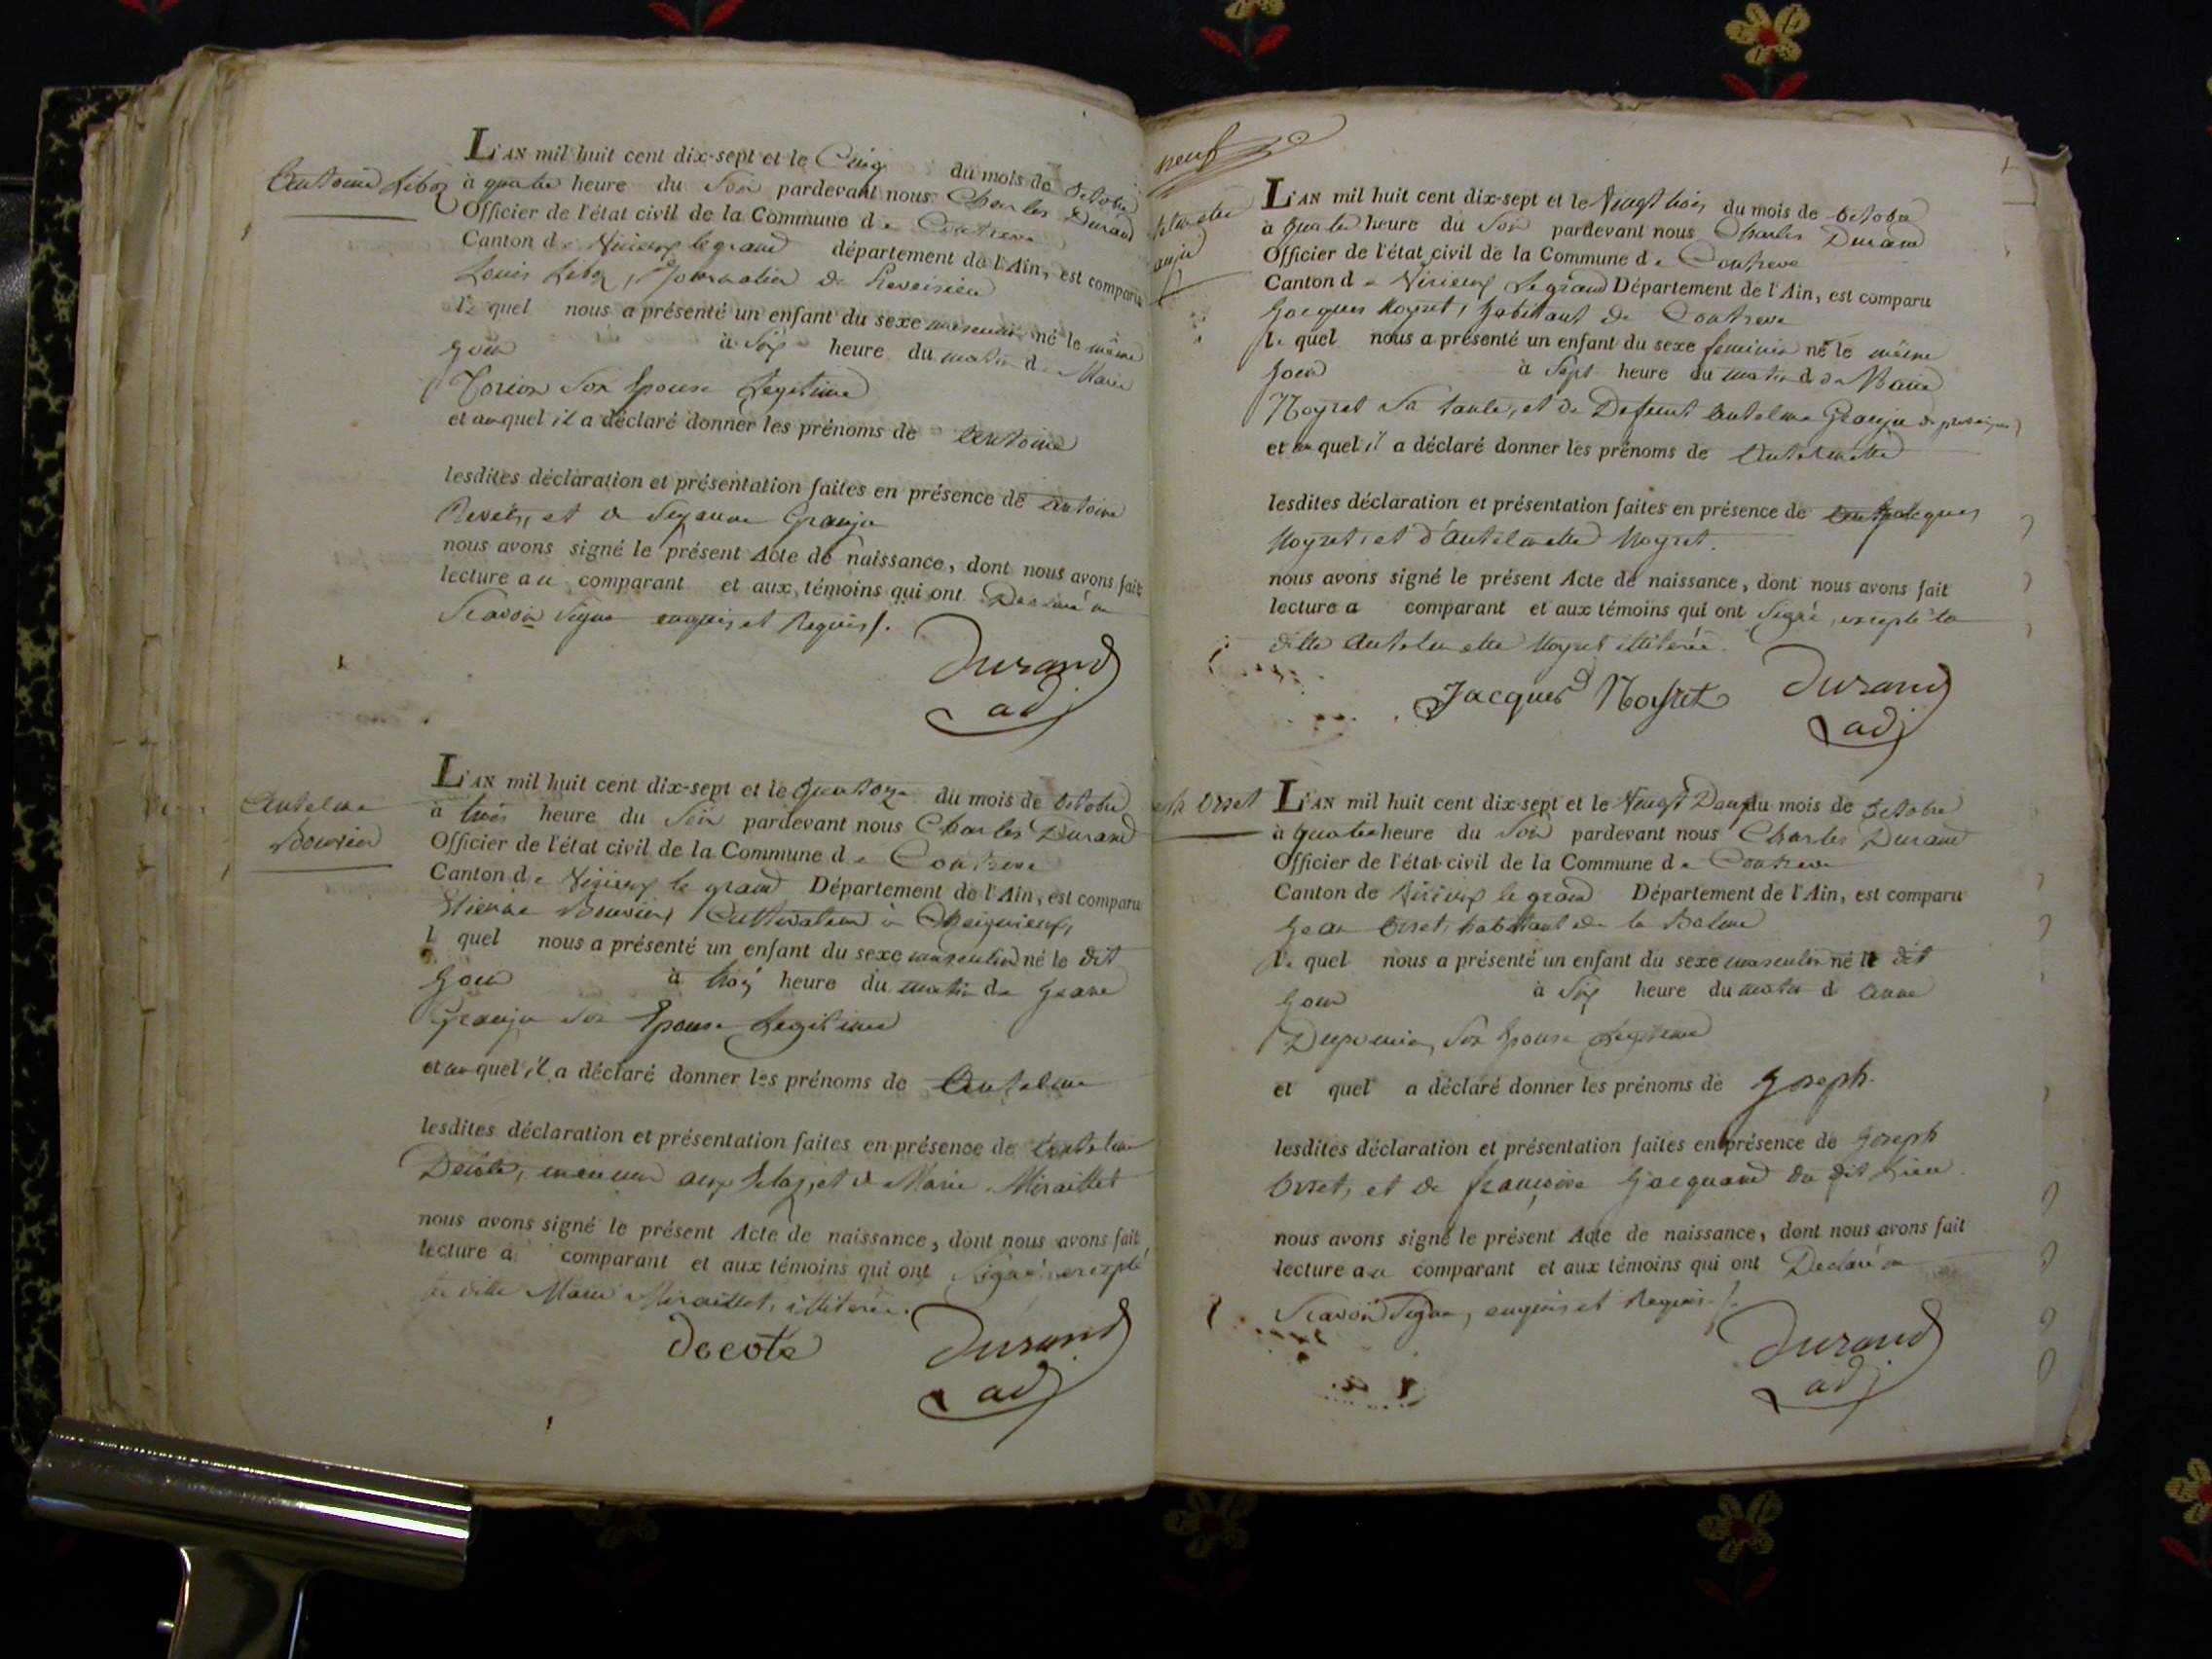 Antoine Liboz
L'AN mil huit cent dix-sept et le Cinq du mois de octobre
à quatre heure du Soir pardevant nous Charles Durand
Officier de l'état civil de la Commune de Contrevoz
Canton de Virieux le grand département de l'Ain, est comparu
Louis Liboz, journalier de
le quel nous a présenté un enfant du sexe masculin né le même
jour à Six heure du matin de Marie
son Epouse Legitime
et auquel il a déclaré donner les prénoms de Antoine
lesdites déclaration et présentation faites en présence de Antoine
et de Suzanne Granju
nous avons signé le présent Acte de naissance, dont nous avons fait
lecture au comparant et aux témoins qui ont Declaré ne
Scavoir Signer enquis et Requis
Durand
adj
Antelme
Bouvier
L'AN mil huit cent dix-sept et le quatorze du mois de octobre
à trois heure du Soir pardevant nous Charles Durand
Officier de l'état civil de la Commune de
Canton de Virieux le grand Département de l'Ain, est comparu
Etienne Bouvier, Cultivateur à Cheignieux,
l quel nous a présenté un enfant du sexe masculin né le dit
jour à trois heure du matin de Jeane
Granju son Epouse Legitime
et auquel il a déclaré donner les prénoms de Antelme
lesdites déclaration et présentation faites en présence de Antelme
Decote, et de Marie Miraillet
nous avons signé le présent Acte de naissance, dont nous avons fait
lecture a comparant et aux témoins qui ont Signé excepté
la ditte Marie Miraillet, illiterée.
Decote
Durand
adj
neuf
L'AN mil huit cent dix-sept et le Vingt trois du mois de octobre
à quatre heure du Soir pardevant nous Charles Durand
Officier de l'état civil de la Commune de
Canton de Virieux Legrand Département de l'Ain, est comparu
Jacques Moyret, habitant de
le quel nous a présenté un enfant du sexe feminin né le même
jour à Sept heure du matin de Marie
Moyret Sa tante, et de Defunt Antelme Granju
et au quel il a déclaré donner les prénoms de Antelmette
lesdites déclaration et présentation faites en présence de Jacques
Moyret, et d'Antelmette Moyret.
nous avons signé le présent Acte de naissance, dont nous avons fait
lecture a comparant et aux témoins qui ont Signé, excepté la
ditte Antelmette Moyret illiterée.
Jacques Moyret
Durand
adj
Orset
L'AN mil huit cent dix-sept et le Vingt Deux du mois de octobre
à quatre heure du Soir pardevant nous Charles Durand
Officier de l'état civil de la Commune de
Canton de Virieux le grand Département de l'Ain, est comparu
Jean Orset, habitant de la Balme
le quel nous a présenté un enfant du sexe masculin né le dit
jour à Six heure du matin d Anne
Son Epouse Legitime
et quel a déclaré donner les prénoms de Joseph.
lesdites déclaration et présentation faites en présence de Joseph
Orset, et de françoise Jacquand du dit Lieu.
nous avons signé le présent Acte de naissance, dont nous avons fait
lecture au comparant et aux témoins qui ont Declaré ne
Scavoir Signer, enquis et Requis
Durand
adj